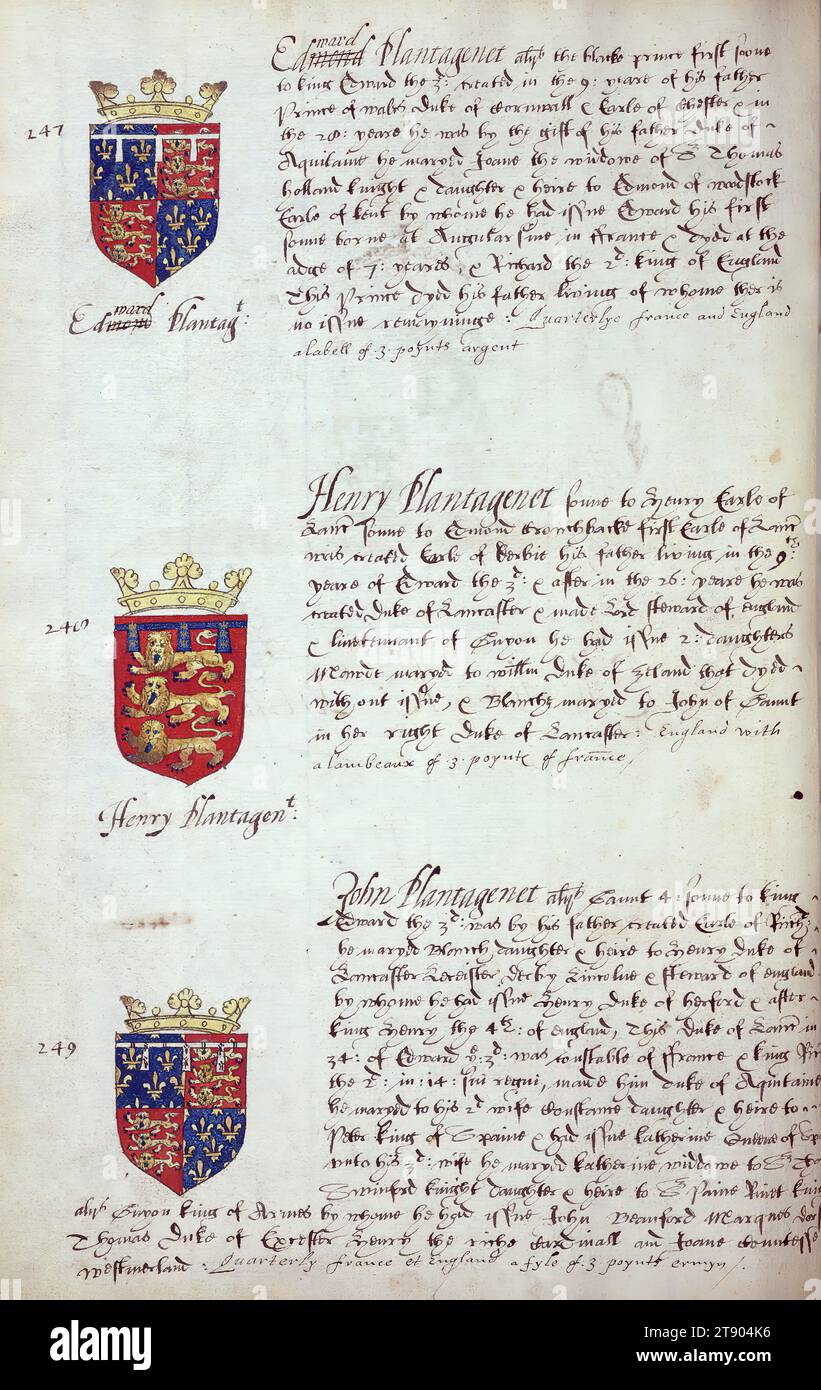 Edmond ward Plantagenet als the blacke prince first sonne
to king Edward the 3: created in the 9: yeare of his father
Prince of wales Duke of Cornwall & Earle of Chester & in
the 28: yeare he was by the gift of his father Duke of
Aquitaine he maryed Joane the widdowe of Sr Thomas
holland knight & daughter & heire to Edmond of woodstock
Earle of kent by whome he had issue Edward his first
sonne borne at in ffrance & dyed at the
adge of 7: yeares, & Richard the 2d: king of England
This Prince dyed his father living of whome ther is
no issue remayninge: Quarterlye france and England
a labell of .3. poynts argent
247
Edmond ward Plantagt:
Henry Plantagenet sonne to Henry Earle of
Lanc sonne to Edmond Crouchbacke first Earle of Lanc
was created Earle of Derbie his father living in the 9th:
yeare of Edward the 3d: & after in the 26: yeare he was
created Duke of Lancaster & made Lord steward of england
& liuetennant of Guyon he had issue 2: daughters
Mawde maryed to willm Duke of Zeland that dyed
without issue, & Blanch maryed to John of Gaunt
in her right Duke of Lancaster: England with
a lambeaux of .3. poynts of france,
248
Henry Plantagent:
John Plantagenet als Gaunt 4: sonne to king
Edward the 3d: was by his father created Earle of Richm
he maryed Blanch daughter & heire to Henry Duke of
Lancaster Leicester, derby Lincolne & steward of england
by whome he had issue Henry Duke of herford & after
king Henry the 4th: of england, This Duke of Lanc in
34: of Edward ye 3d: was constable of ffrance & king Ric
the 2d: in: 14: sui regni, made him Duke of Aquitaine
he maryed to his 2d wife Constance daughter & heire to
Peter king of Spaine & had issue Katherine Queene of Sp
vnto his 3d: wife he maryed Katherine widdowe to Sr Tho
Swinford knight daughter & heire to Sr Paine Ruet kni
als Guyon king of Armes by whome he had issue John Beauford Marques Dors
Thomas Duke of Excester Henry the riche Cardinall and Joane Countesse
westmerland: Quarterly france et England a fyle of .3. poynts ermyn.
249
alamy
Image ID: 2T904K6
www.alamy.com